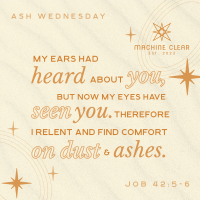 ASH WEDNESDAY
MACHINE CLEAR
EST. 2020
MY EARS HAD
heard ABOUT you,
BUT NOW MY EYES HAVE
seen you. THEREFORE
I RELENT AND FIND COMFORT
on dust & ashes.
JOB 42:5-6